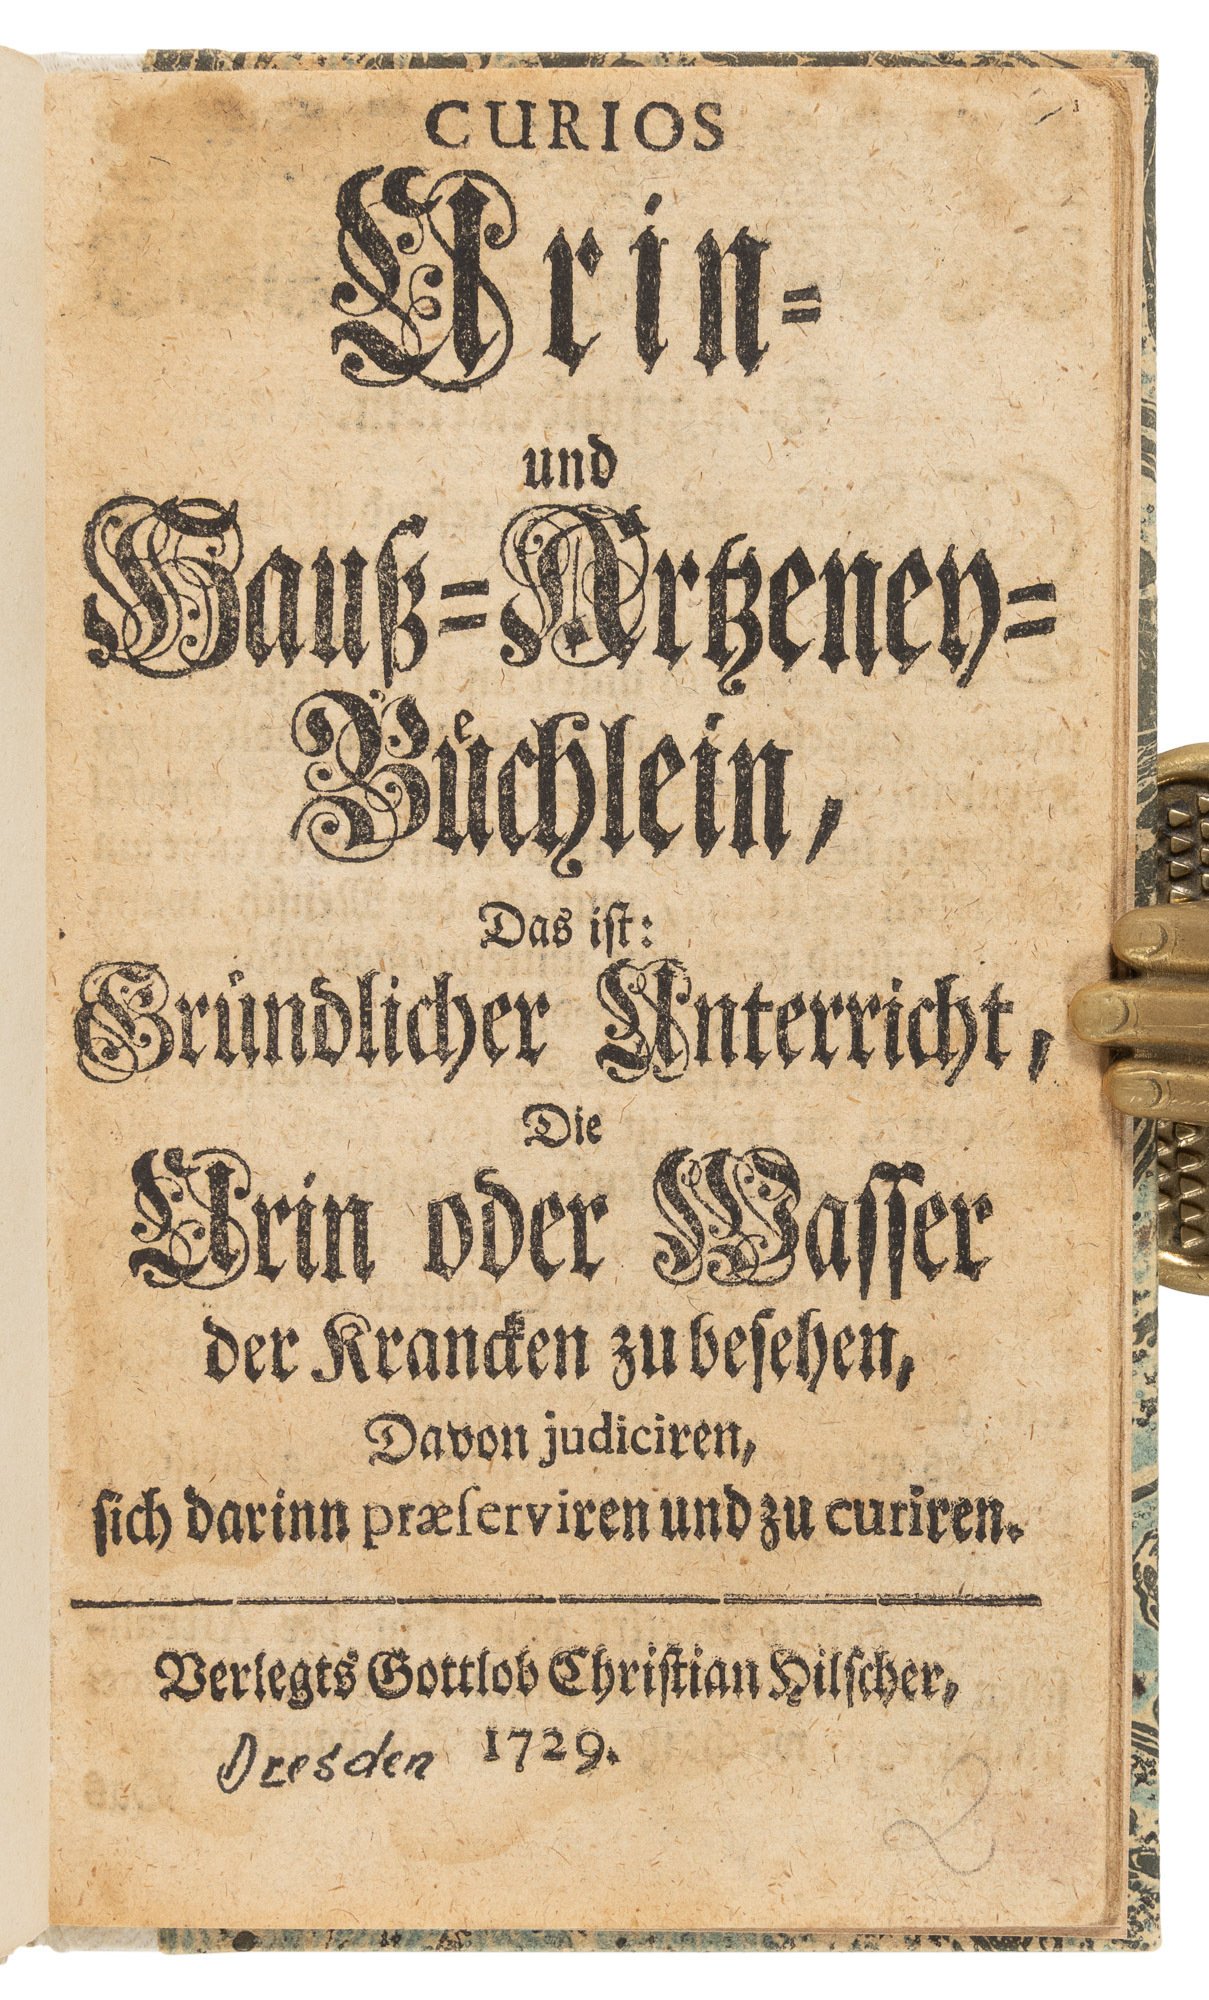 CURIOS
Urin-
und
Hauß-Artzeney-
Buͤchlein,
Das ist:
Gründlicher Unterricht,
Die
Urin oder Wasser
der Krancken zu besehen,
Davon judiciren,
sich darinn præserviren und zu curiren.
Verlegts Gottlob Christian Hilscher,
Dresden 1729.
2